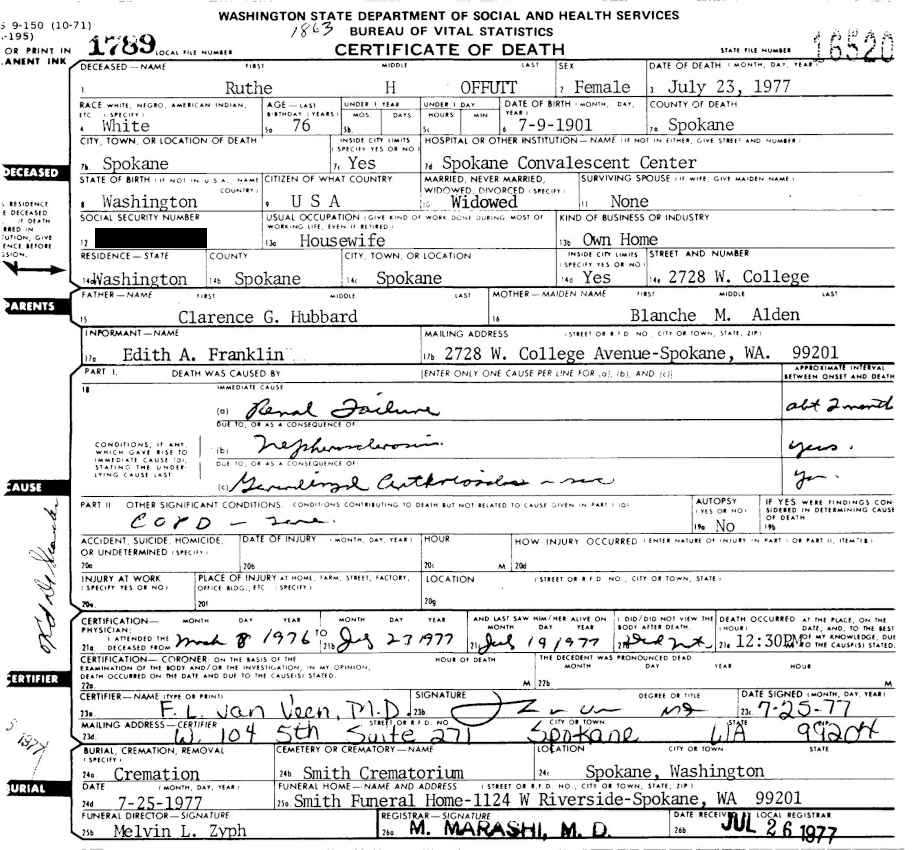 WASHINGTON STATE DEPARTMENT OF SOCIAL AND HEALTH SERVICES
S 9-150 (10-71) 1863 BUREAU OF VITAL STATISTICS
-195)
OR PRINT IN 1789 LOCAL FILE NUMBER CERTIFICATE OF DEATH STATE FILE NUMBER 16520
ANENT INK
DECEASED—NAME FIRST MIDDLE LAST SEX DATE OF DEATH (MONTH, DAY, YEAR)
1 Ruthe H OFFUTT 2 Female 3 July 23, 1977
RACE WHITE, NEGRO, AMERICAN INDIAN, AGE—LAST UNDER 1 YEAR UNDER 1 DAY DATE OF BIRTH (MONTH, DAY, COUNTY OF DEATH
ETC. (SPECIFY) BIRTHDAY (YEARS) MOS. DAYS HOURS MIN YEAR)
4 White 5a 76 5b 5c 6 7-9-1901 7a Spokane
CITY, TOWN, OR LOCATION OF DEATH INSIDE CITY LIMITS HOSPITAL OR OTHER INSTITUTION—NAME (IF NOT IN EITHER, GIVE STREET AND NUMBER)
(SPECIFY YES OR NO)
7b Spokane 7c Yes 7d Spokane Convalescent Center
DECEASED
STATE OF BIRTH (IF NOT IN U.S.A., NAME CITIZEN OF WHAT COUNTRY MARRIED, NEVER MARRIED, SURVIVING SPOUSE (IF WIFE, GIVE MAIDEN NAME)
COUNTRY) WIDOWED, DIVORCED (SPECIFY)
8 Washington 9 U S A 10 Widowed 11 None
SOCIAL SECURITY NUMBER USUAL OCCUPATION (GIVE KIND OF WORK DONE DURING MOST OF KIND OF BUSINESS OR INDUSTRY
WORKING LIFE, EVEN IF RETIRED)
12 13a Housewife 13b Own Home
S RESIDENCE
E DECEASED
IF DEATH
RRED IN
TUTION, GIVE
ENCE BEFORE
SSION.
RESIDENCE—STATE COUNTY CITY, TOWN, OR LOCATION INSIDE CITY LIMITS STREET AND NUMBER
(SPECIFY YES OR NO)
14a Washington 14b Spokane 14c Spokane 14d Yes 14e 2728 W. College
PARENTS
FATHER—NAME FIRST MIDDLE LAST MOTHER—MAIDEN NAME FIRST MIDDLE LAST
15 Clarence G. Hubbard 16 Blanche M. Alden
INFORMANT—NAME MAILING ADDRESS (STREET OR R.F.D. NO., CITY OR TOWN, STATE, ZIP)
17a Edith A. Franklin 17b 2728 W. College Avenue-Spokane, WA. 99201
PART I. DEATH WAS CAUSED BY [ENTER ONLY ONE CAUSE PER LINE FOR (a), (b), AND (c)] APPROXIMATE INTERVAL
BETWEEN ONSET AND DEATH
18 IMMEDIATE CAUSE
(a) Renal Failure abt 2 month
DUE TO, OR AS A CONSEQUENCE OF
CONDITIONS, IF ANY,
WHICH GAVE RISE TO
IMMEDIATE CAUSE (a),
STATING THE UNDER-
LYING CAUSE LAST
(b) Nephrosclerosis yrs.
DUE TO, OR AS A CONSEQUENCE OF
(c) Generalized
CAUSE
PART II OTHER SIGNIFICANT CONDITIONS. CONDITIONS CONTRIBUTING TO DEATH BUT NOT RELATED TO CAUSE GIVEN IN PART I (a) AUTOPSY IF YES WERE FINDINGS CON-
(YES OR NO) SIDERED IN DETERMINING CAUSE
OF DEATH
COPD 19a No 19b
ACCIDENT, SUICIDE, HOMICIDE, DATE OF INJURY (MONTH, DAY, YEAR) HOUR HOW INJURY OCCURRED (ENTER NATURE OF INJURY IN PART I OR PART II, ITEM 18)
OR UNDETERMINED (SPECIFY)
20a 20b 20c M 20d
INJURY AT WORK PLACE OF INJURY AT HOME, FARM, STREET, FACTORY, LOCATION (STREET OR R.F.D. NO., CITY OR TOWN, STATE)
(SPECIFY YES OR NO) OFFICE BLDG., ETC. (SPECIFY)
20e 20f 20g
CERTIFICATION— MONTH DAY YEAR MONTH DAY YEAR AND LAST SAW HIM/HER ALIVE ON I DID/DID NOT VIEW THE DEATH OCCURRED AT THE PLACE, ON THE
PHYSICIAN: MONTH DAY YEAR BODY AFTER DEATH. (HOUR) DATE, AND, TO THE BEST
21a I ATTENDED THE DECEASED FROM 8 1976 TO 21b July 23 1977 21c July 19 1977 21d Did not 21e 12:30PM OF MY KNOWLEDGE, DUE
M TO THE CAUSE(S) STATED.
CERTIFICATION—CORONER ON THE BASIS OF THE HOUR OF DEATH THE DECEDENT WAS PRONOUNCED DEAD
EXAMINATION OF THE BODY AND/OR THE INVESTIGATION, IN MY OPINION, MONTH DAY YEAR HOUR
DEATH OCCURRED ON THE DATE AND DUE TO THE CAUSE(S) STATED.
22a M 22b M
CERTIFIER
CERTIFIER—NAME (TYPE OR PRINT) SIGNATURE DEGREE OR TITLE DATE SIGNED (MONTH, DAY, YEAR)
23a F. L. van Veen, M.D. 23b MD 23c 7-25-77
MAILING ADDRESS—CERTIFIER STREET OR R.F.D. NO. CITY OR TOWN STATE ZIP
23d W. 104 5th Suite 271 Spokane WA 99204
1977
BURIAL, CREMATION, REMOVAL CEMETERY OR CREMATORY—NAME LOCATION CITY OR TOWN STATE
(SPECIFY)
24a Cremation 24b Smith Crematorium 24c Spokane, Washington
BURIAL
DATE (MONTH, DAY, YEAR) FUNERAL HOME—NAME AND ADDRESS (STREET OR R.F.D. NO., CITY OR TOWN, STATE, ZIP)
24d 7-25-1977 25a Smith Funeral Home-1124 W Riverside-Spokane, WA 99201
FUNERAL DIRECTOR—SIGNATURE REGISTRAR—SIGNATURE DATE RECEIVED LOCAL REGISTRAR
25b Melvin L. Zyph 26a M. MARASHI, M. D. 26b JUL 26 1977